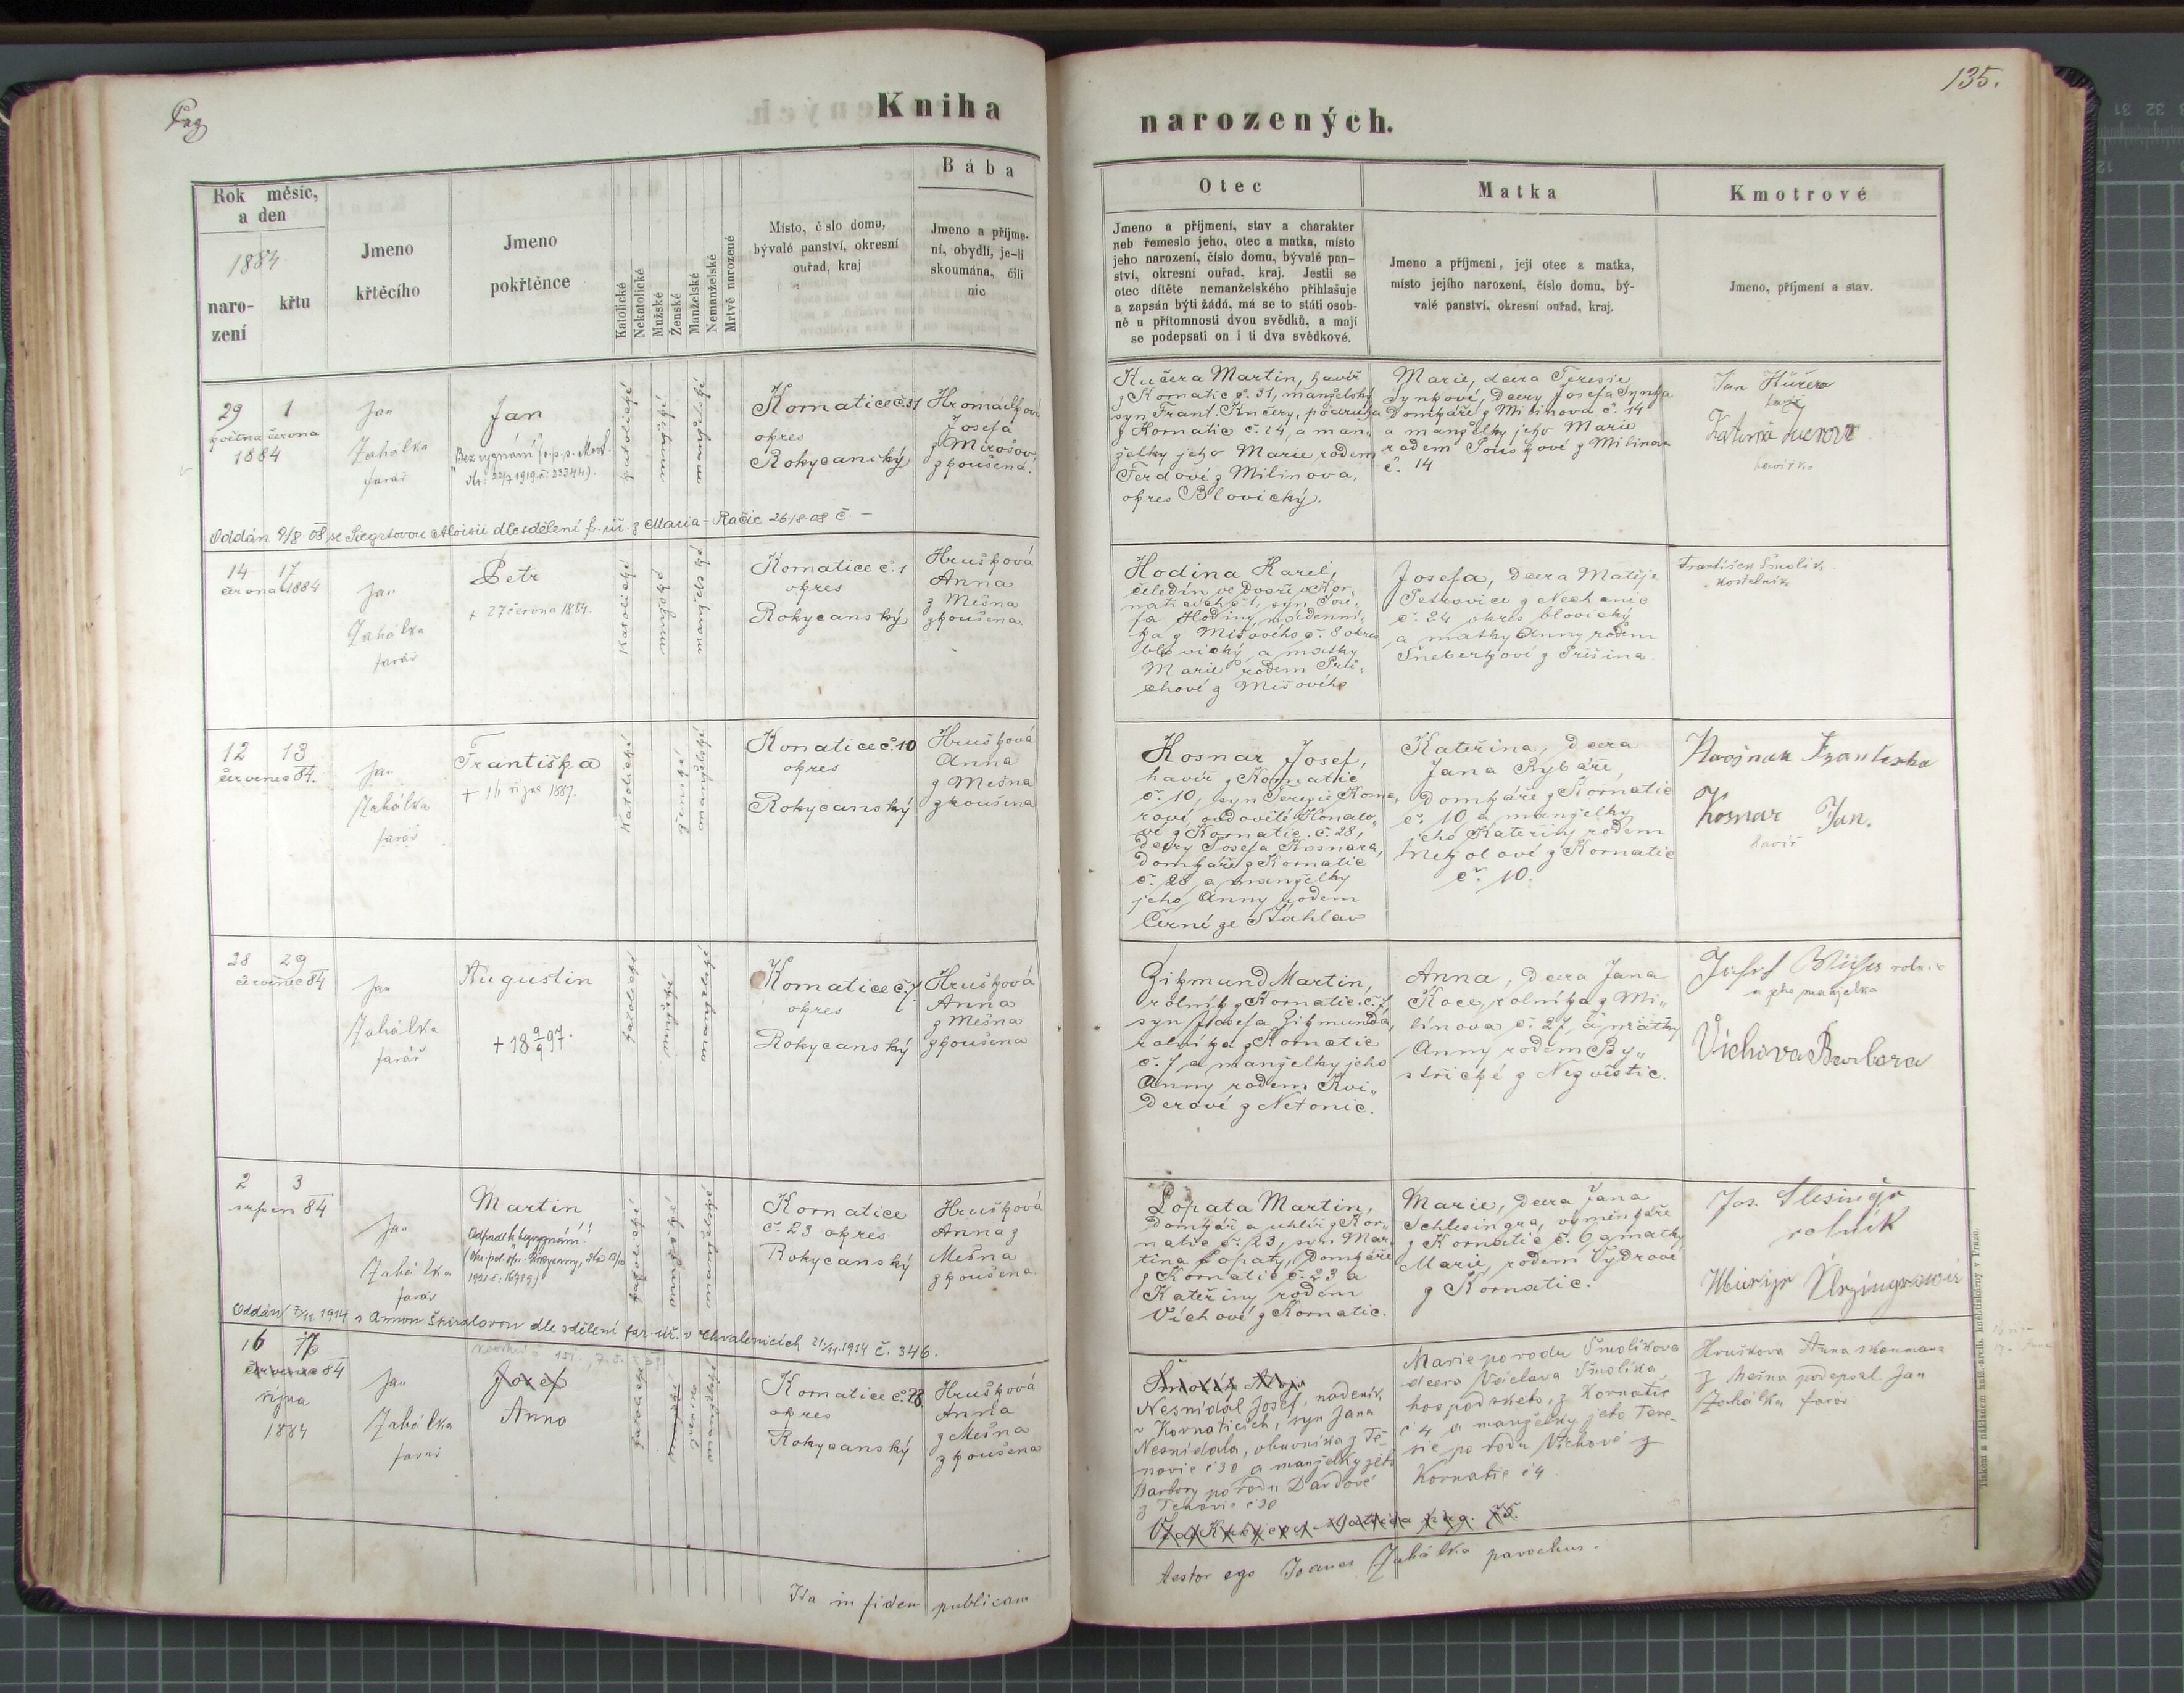 Pag
Kniha
Rok měsíc,
a den
1884
naro-
zení
křtu
Jmeno
křtěcího
Jmeno
pokřtěnce
Katolické
Nekatolické
Mužské
Ženské
Manželské
Nemanželské
Mrtvě narozené
Místo, číslo domu,
bývalé panství, okresní
ouřad, kraj
Bába
Jmeno a příjme-
ní, obydlí, je-li
skoumána, čili
nic
29 1
května června
1884
Jan
Zahálka
farář
Jan
"Bez vyznání"
22/7 1919 č. 23744).
katolické
mužské
manželské
Komatice č. 31
okres
Rokycanský
Hromádková
Josefa
z Mirošov
zkoušená.
Oddán 9/8. 08 se Siegrtovou Aloisií dle sdělení f. úř. z Maria-Račic 26/8 08 č. —
14 17
června 1884
Jan
Zahálka
farář
Petr
+ 27 června 1884.
Katolické
mužské
manželské
Kornatice č. 1
okres
Rokycanský
Hrušková
Anna
z Mešna
zkoušena.
12 13
červenec 84.
Jan
Zahálka
farář
Františka
+ 16 října 1887.
Katolické
ženské
manželské
Kornatice č. 10
okres
Rokycanský
Hrušková
Anna
z Mešna
zkoušena
28 29
červenec 84
Jan
Zahálka
farář
Augustin
+ 18 9/9 97.
katolické
mužské
manželské
Kornatice č. 7
okres
Rokycanský
Hrušková
Anna
z Mešna
zkoušena
2 3
srpen 84
Jan
Zahálka
farář
Martin
Odpadl k bezvyznání!
1921 č. 16989)
katolické
mužské
manželské
Kornatice
č. 23 okres
Rokycanský
Hrušková
Anna z
Mešna
zkoušena.
Oddán 7/11 1914 s Annou Škiralovou dle sdělení far. úř. v Chválenicích 21/11. 1914 č. 346.
16 17
červenec 84
října
1884
Jan
Zahálka
farář
Josef
Anna
katolické
mužské
ženské
manželské
Kornatice č. 28
okres
Rokycanský
Hrušková
Anna
z Mešna
zkoušena
Ita in fidem publicam
135.
narozených.
Otec
Jmeno a příjmení, stav a charakter
neb řemeslo jeho, otec a matka, místo
jeho narození, číslo domu, bývalé pan-
ství, okresní ouřad, kraj. Jestli se
otec dítěte nemanželského přihlašuje
a zapsán býti žádá, má se to státi osob-
ně u přítomnosti dvou svědků, a mají
se podepsati on i ti dva svědkové.
Matka
Jmeno a příjmení, její otec a matka,
místo jejího narození, číslo domu, bý-
valé panství, okresní ouřad, kraj.
Kmotrové
Jmeno, příjmení a stav.
Kučera Martin, havíř
z Kornatic č. 31, manželský
syn Frant. Kučery, podruha
z Kornatic č. 24, a man-
želky jeho Marie rodem
Ferdové z Milinova,
okres Blovický.
Marie, dcera Teresie
Synkové, dcery Josefa Synka
Domkáře z Milinova č. 14
a manželky jeho Marie
rodem Pouskové z Milinova
č. 14
Jan Kučera
Hodina Karel,
čeledín ve Dvoře v Kor-
naticích č. 1, syn Jose-
fa Hodiny, nádenní-
ka z Míšového č. 8 okres
blovický a matky
Marie rodem Prů-
chové z Míšového
Josefa, dcera Matěje
Petrovice z Nechanic
č. 24 okres blovický
a matky Anny rodem
Šnebertové z Příšina.
František Smolík,
kostelník
Kosnar Josef,
havíř z Kornatic
č. 10, syn Terezie Kosna-
rové, ovdovělé Honalo-
vé z Kornatic č. 28,
dcery Josefa Kosnara,
domkáře z Kornatic
č. 28 a manželky
jeho Anny rodem
Černé ze Šťáhlav
Kateřina, dcera
Jana Rybáře,
Domkáře z Kornatic
č. 10 a manželky
jeho Kateřiny rodem
Nekolové z Kornatic
č. 10.
Františka
Kosnar Jan.
havíř
Zikmund Martin,
rolník z Kornatic č. 7,
syn Josefa Zikmunda,
rolníka z Kornatic
č. 7, a manželky jeho
Anny rodem Kvi-
derové z Netonic.
Anna, dcera Jana
Koce, rolníka z Mi-
línova č. 27, a matky
Anny rodem By-
střické z Nezvěstic.
Josef rolník
a jeho manželka
Víchova Barbora
Lopata Martin,
domkář a uhlíř z Kor-
natic č. 23, syn Mar-
tina Lopaty, Domkáře
z Kornatic č. 23 a
Kateřiny rodem
Víchové z Kornatic.
Marie, dcera Jana
Schlesingra, výměnkáře
z Kornatic č. 6 a matky
Marie, rodem Vydrové
z Kornatic.
Jos. Slesingr
rolník
Nesnídal Josef, nádeník
v Kornaticích, syn Jana
Nesnídala, obuvníka z Tě-
novic č 30 a manželky jeho
Barbory po rodu Dardové
z Těnovic č 30
Marie po rodu Smolíkova
dcera Václava Smolíka,
hospodského, z Kornatic
č 4 a manželky jeho Tere-
sie po rodu Víchové z
Kornatic č 4.
Hruškova Anna skoumana
z Mešna podepsal Jan
Zahálka farář
Testor ego Joanes Zahálka parochus.
Tiskem a nákladem kníž.-arcib. knihtiskárny v Praze.